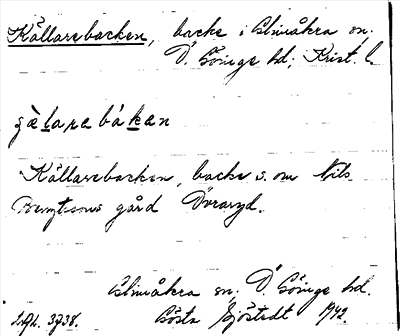 Källarebacken, backe i Glimåkra sn,
Ö. Göinge hd, Krist. l.
Källarebacken, backe s. om Nils
Bengtssons gård Övraryd.
Glimåkra sn, Ö. Göinge hd.
3738. Gösta Sjöstedt 1942.